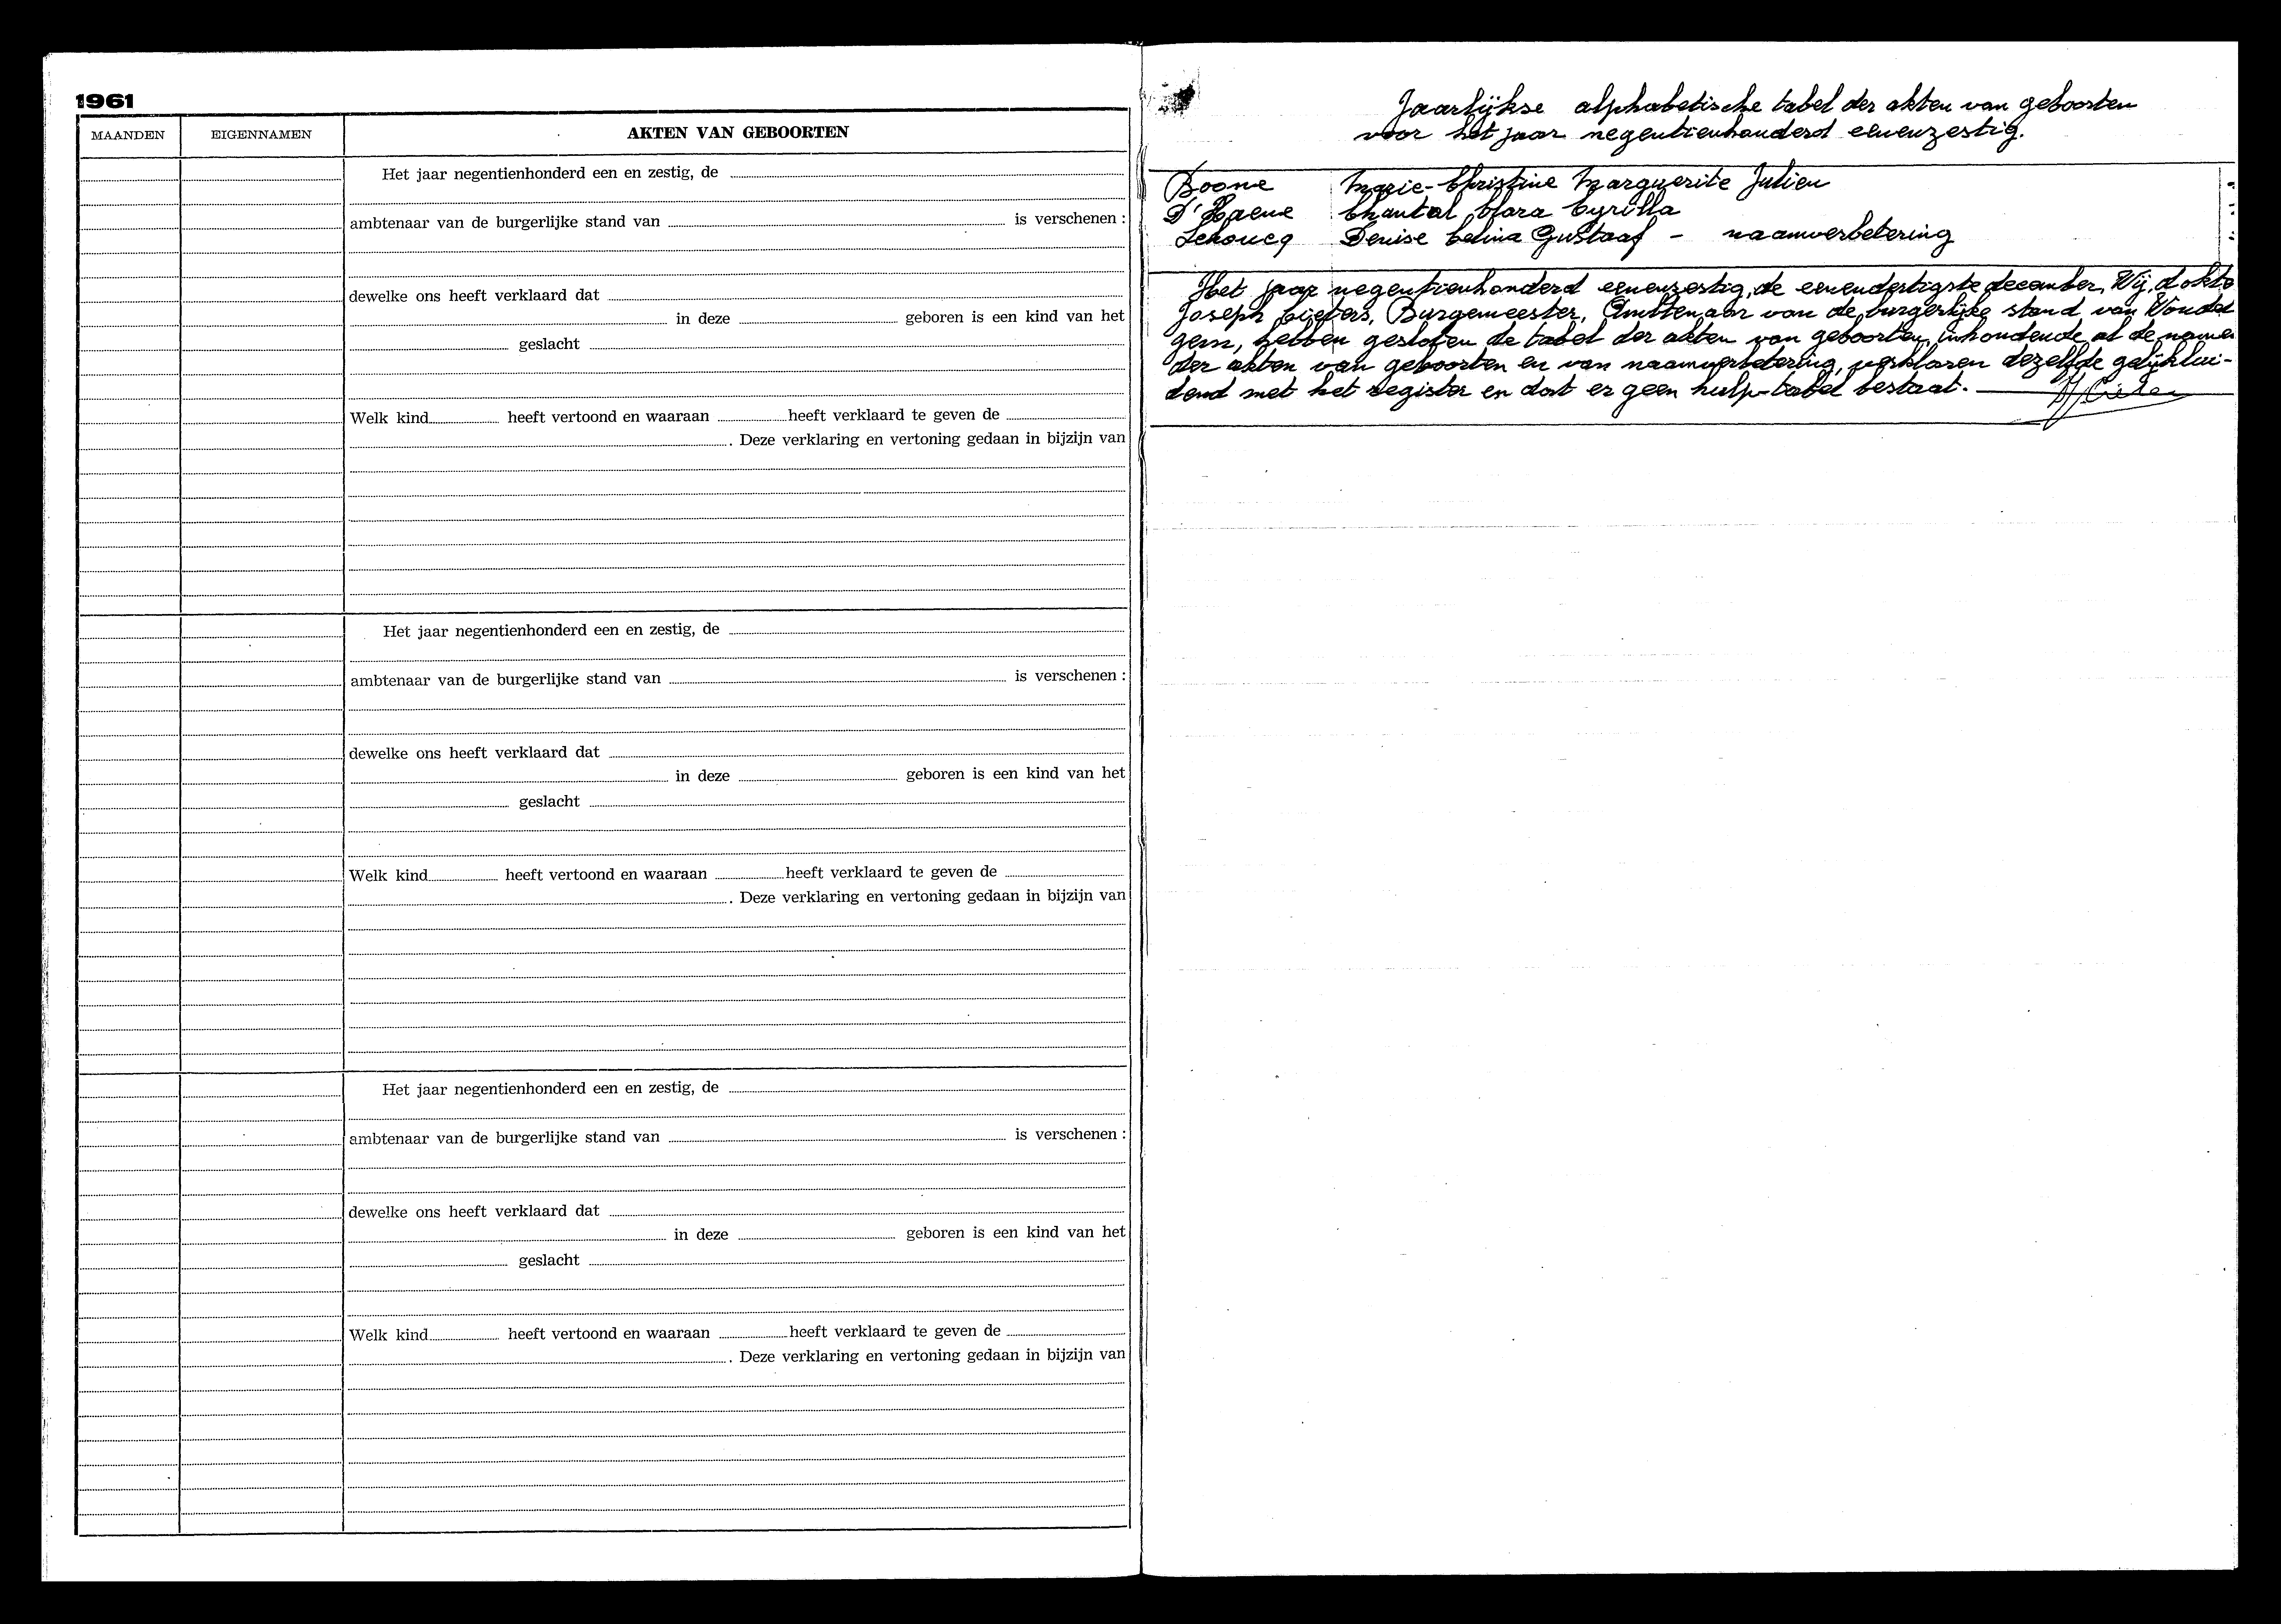 1961
MAANDEN EIGENNAMEN AKTEN VAN GEBOORTEN
Het jaar negentienhonderd een en zestig, de
ambtenaar van de burgerlijke stand van is verschenen :
dewelke ons heeft verklaard dat
in deze geboren is een kind van het
geslacht
Welk kind heeft vertoond en waaraan heeft verklaard te geven de
. Deze verklaring en vertoning gedaan in bijzijn van
Het jaar negentienhonderd een en zestig, de
ambtenaar van de burgerlijke stand van is verschenen :
dewelke ons heeft verklaard dat
in deze geboren is een kind van het
geslacht
Welk kind heeft vertoond en waaraan heeft verklaard te geven de
. Deze verklaring en vertoning gedaan in bijzijn van
Het jaar negentienhonderd een en zestig, de
ambtenaar van de burgerlijke stand van is verschenen :
dewelke ons heeft verklaard dat
in deze geboren is een kind van het
geslacht
Welk kind heeft vertoond en waaraan heeft verklaard te geven de
. Deze verklaring en vertoning gedaan in bijzijn van
Jaarlijkse alphabetische tabel der akten van geboorten
voor het jaar negentienhonderd eenenzestig.
Boone Marie-Christine Marguerite Julien
D'Haene Chantal Clara Cyrilla
Lehoucq Denise Celina Gustaaf - naamverbetering
Het jaar negentienhonderd eenenzestig, de eenendertigste december, Wij, dokto
Joseph Cieters, Burgemeester, Ambtenaar van de burgerlijke stand van Woudel
gem, hebben gesloten de tabel der akten van geboorten, inhoudende al de namen
der akten van geboorten en van naamverbetering, verklaren dezelfde gelijklui-
dend met het register en dat er geen hulp-tabel bestaat.